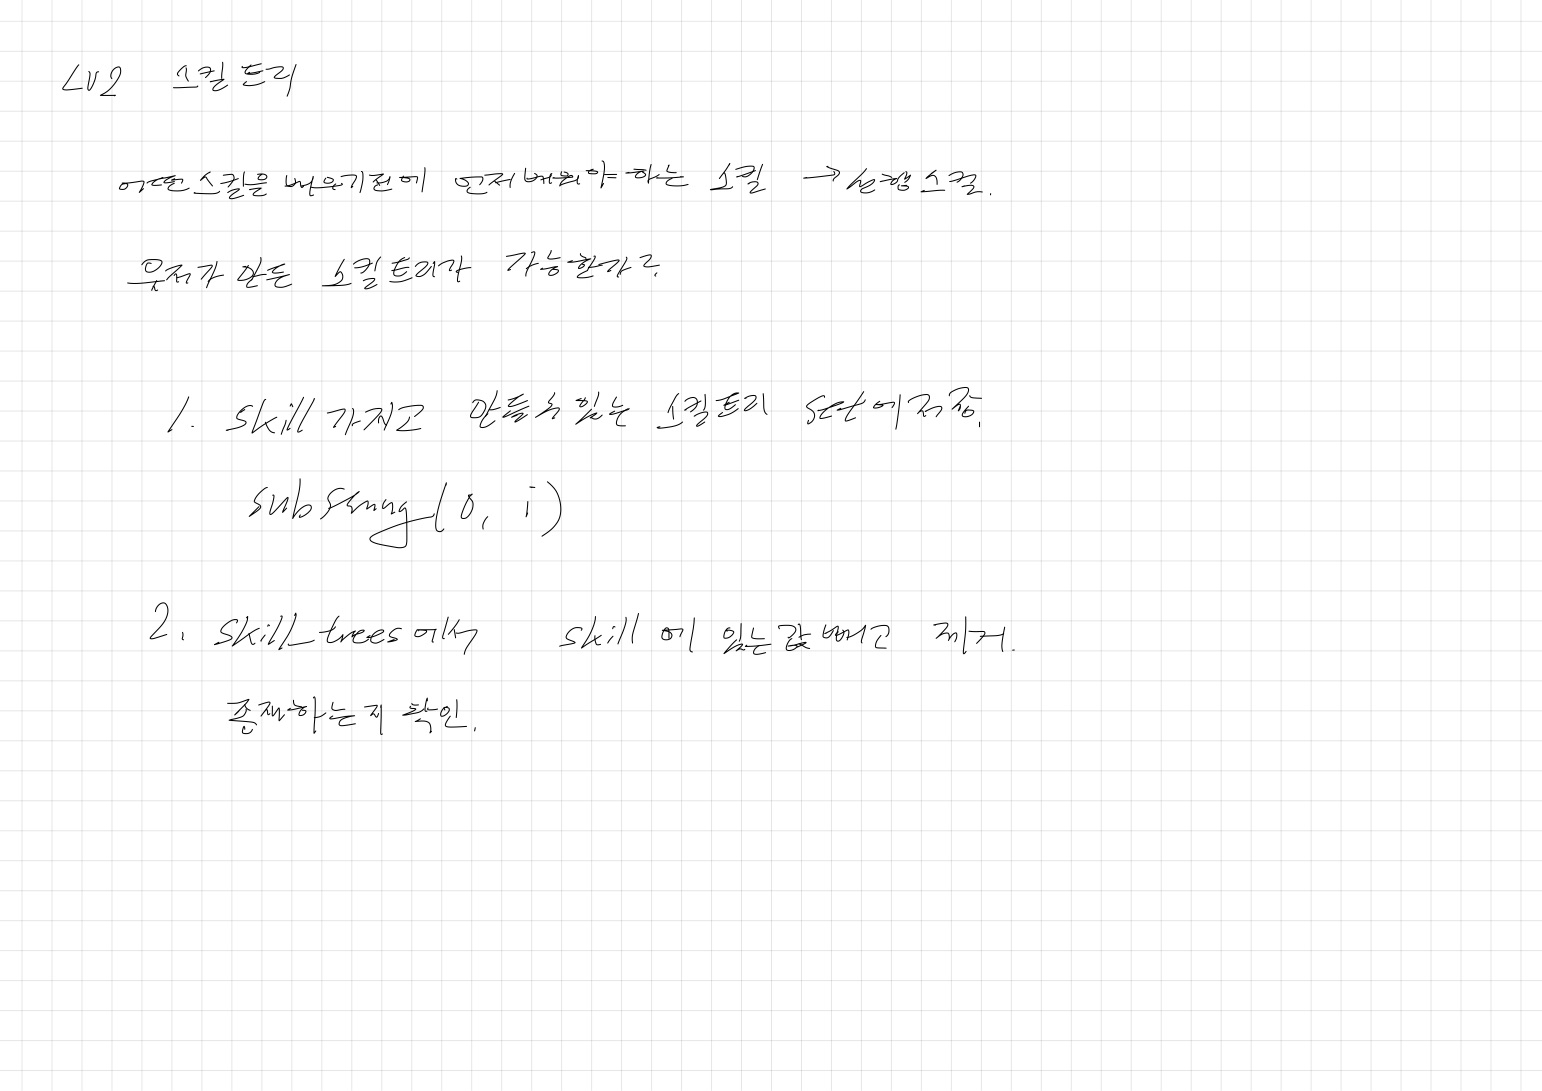 LV2 스킬트리
어떤 스킬을 배우기전에 먼저 배워야 하는 스킬 → 선행스킬.
유저가 만든 스킬트리가 가능한가?
1. skill 가지고 만들 수 있는 스킬트리 set에 저장.
substring(0, i)
2. skill_trees에서 skill에 있는 값 빼고 제거.
존재하는지 확인.